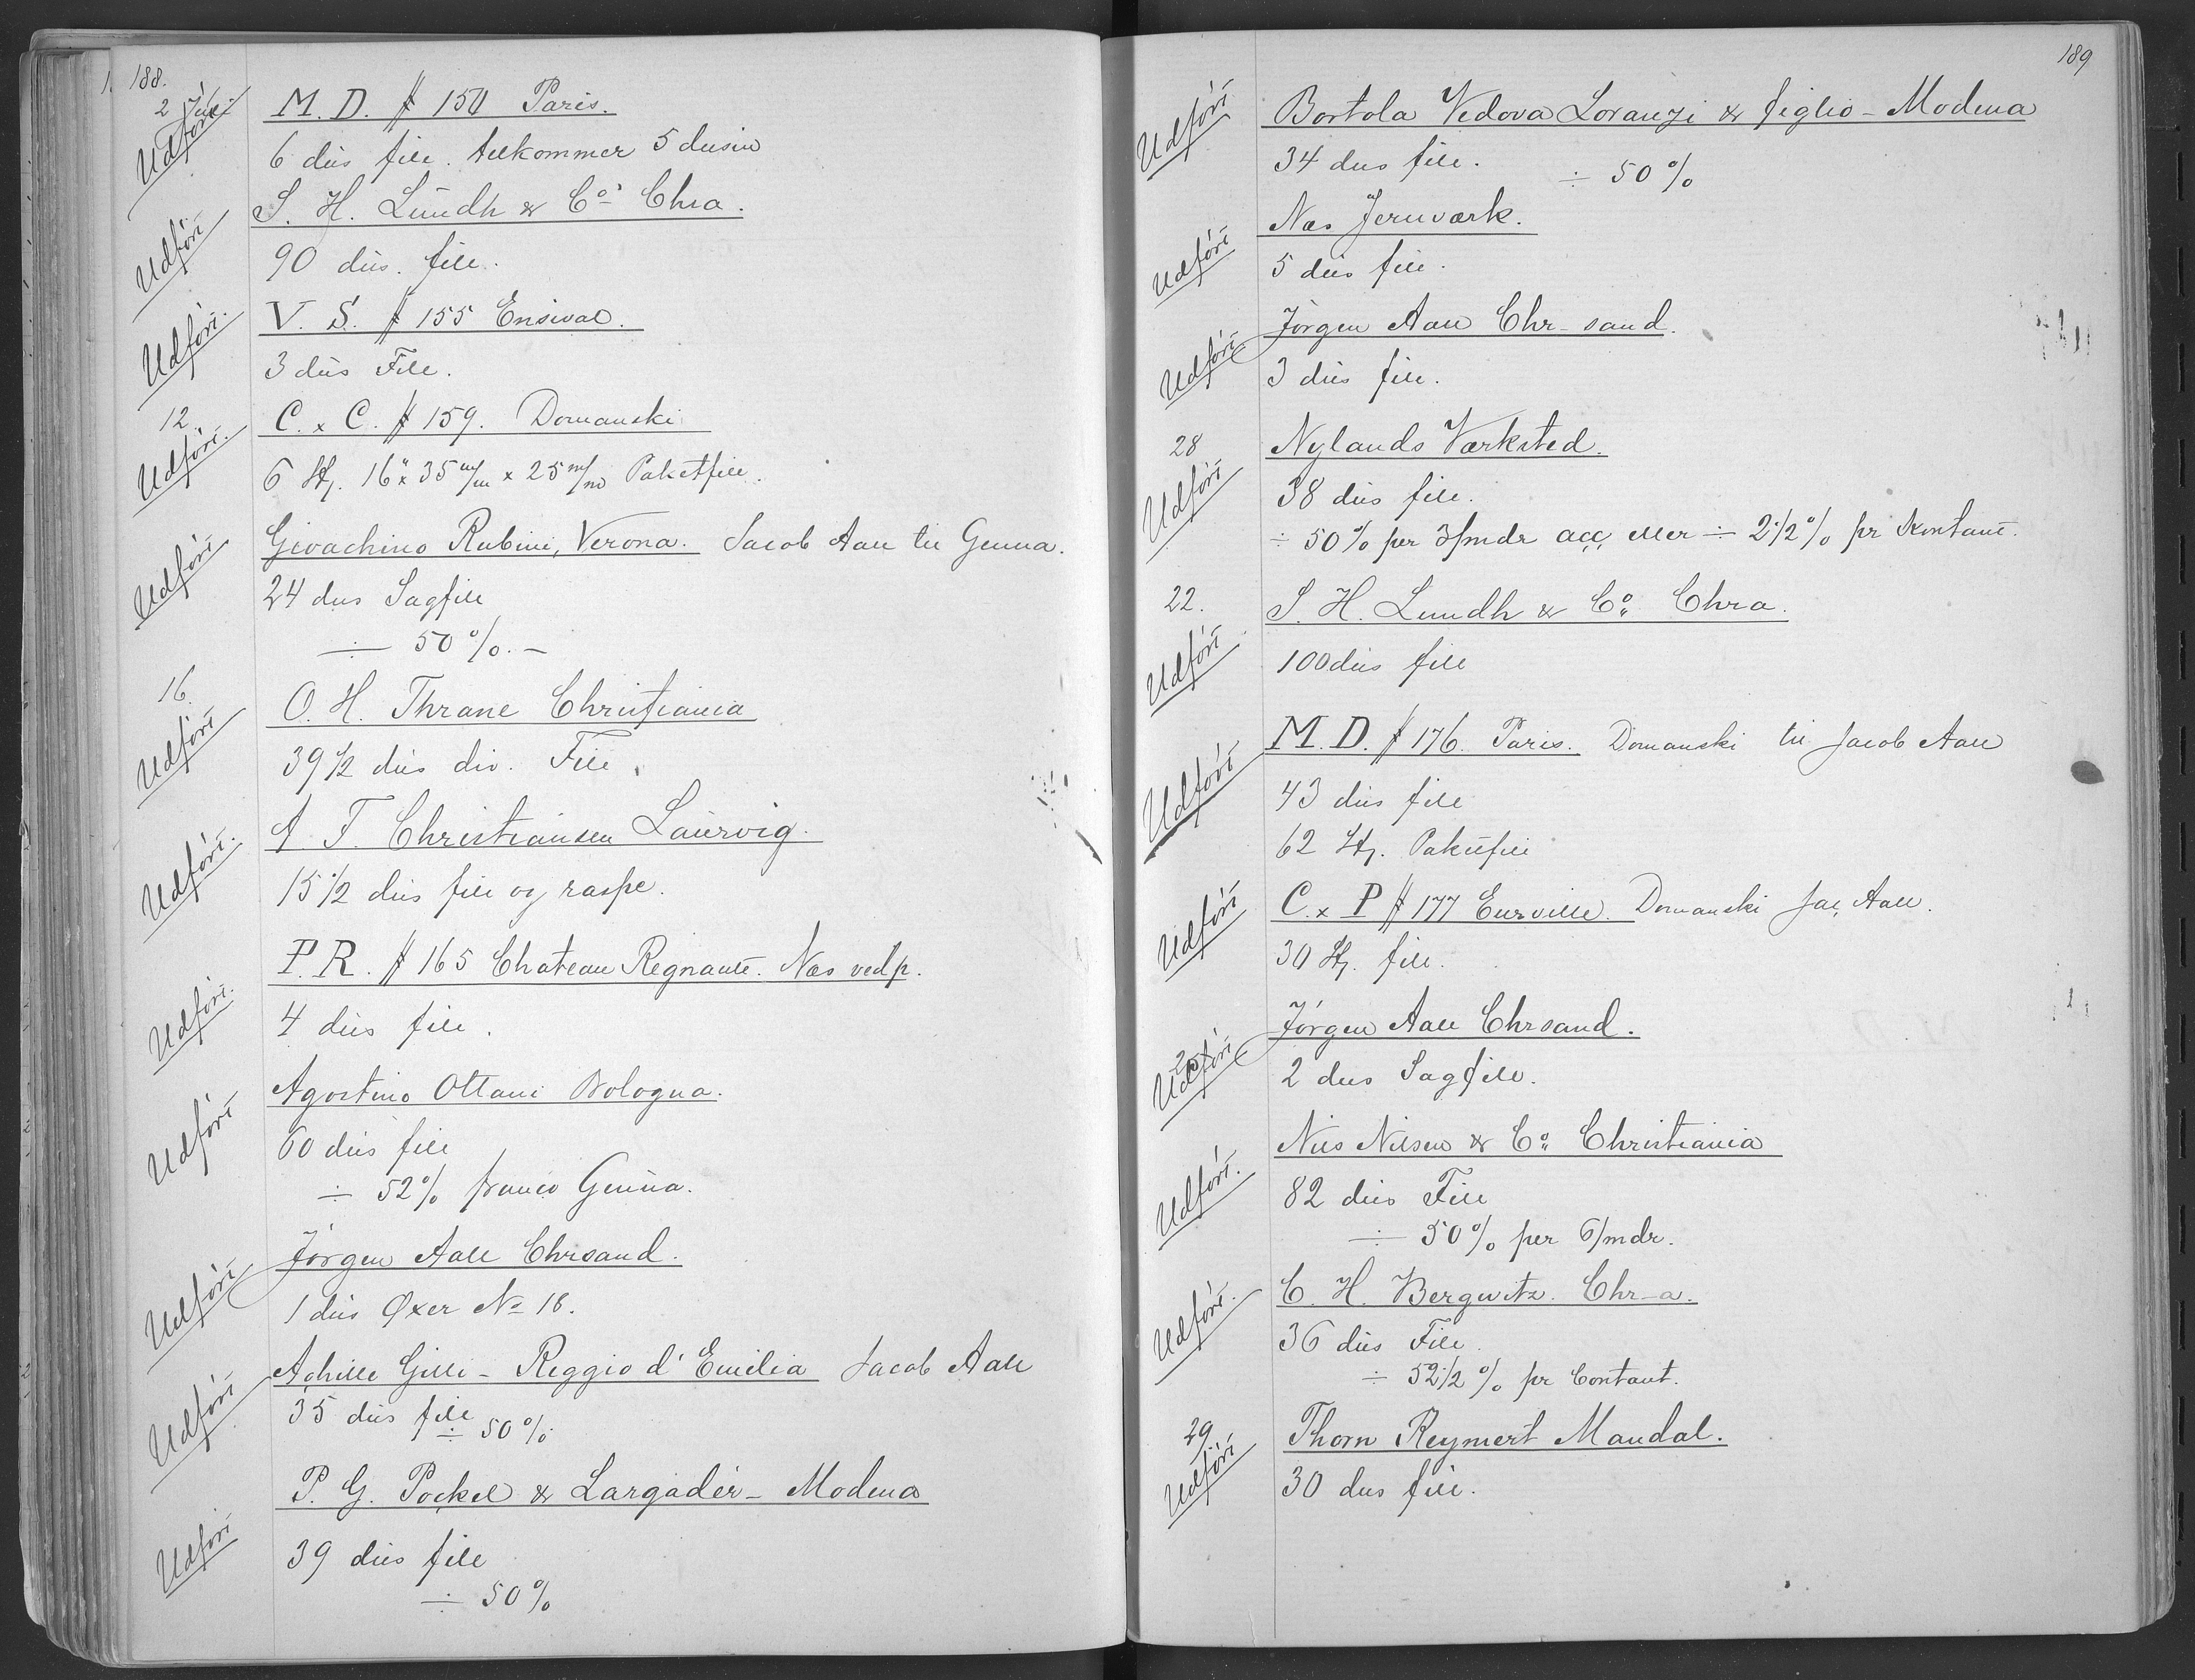 188.
2 Juli
Udført
M. D. # 150 Paris.
6 dus file. tilkommer 5 dusin
Udført
S. H. Lundh & Co. Chra.
90 dus. file.
Udført.
V. S. # 155 Ensival.
3 dus File.
12.
Udført.
C. x C. # 159. Domanski
6 St. 16" x 35 m/m x 25 m/m Paketfile.
Udført
Giovachino Rubini, Verona. Jacob Aall til Genua.
24 dus Sagfile
÷ 50 %. –
16.
Udført
O. H. Thrane Christiania
39 1/2 dus div. File
Udført.
A. F. Christiansen Laurvig.
15 1/2 dus file og raspe.
Udført.
P. R. # 165 Chateau Regnault. Næs vedp.
4 dus file.
Udført
Agostino Ottani Bologna.
60 dus file
÷ 52 % franco Genua.
Udført
Jörgen Aall Chrsand.
1 dus Øxer No 18.
Udført
Achille Gilli – Reggio d'Emilia Jacob Aall
35 dus file
÷ 50 %
Udført
P. G. Pockel & Largadèr – Modena
39 dus file
÷ 50 %
189
Udført
Bortola Vedova Loranzi & figlio – Modena
34 dus file.
÷ 50 %
Udført
Næs Jernværk.
5 dus file.
Udført
Jörgen Aall Chr-sand.
3 dus file.
28
Udført
Nylands Værksted.
38 dus file.
÷ 50 % per 3/mdr acc, eller ÷ 2 1/2 % pr Kontant.
22.
Udført
S. H. Lundh & Co. Chra.
100 dus file
Udført
M. D. # 176. Paris. Domanski til Jacob Aall
43 dus file
62 St. Paketfile
Udført
C. x P # 177 Eurville. Domanski Jac, Aall.
30 St. file.
Udført
Jörgen Aall Chrsand.
2 dus Sagfile.
Udført.
Nils Nilsen & Co. Christiania
82 dus File
÷ 50 % per 6/mdr.
Udført.
C. H. Bergwitz. Chr-a.
36 dus File.
÷ 52 1/2 % pr Contant.
29.
Udført
Thorn Reymert Mandal.
30 dus file.